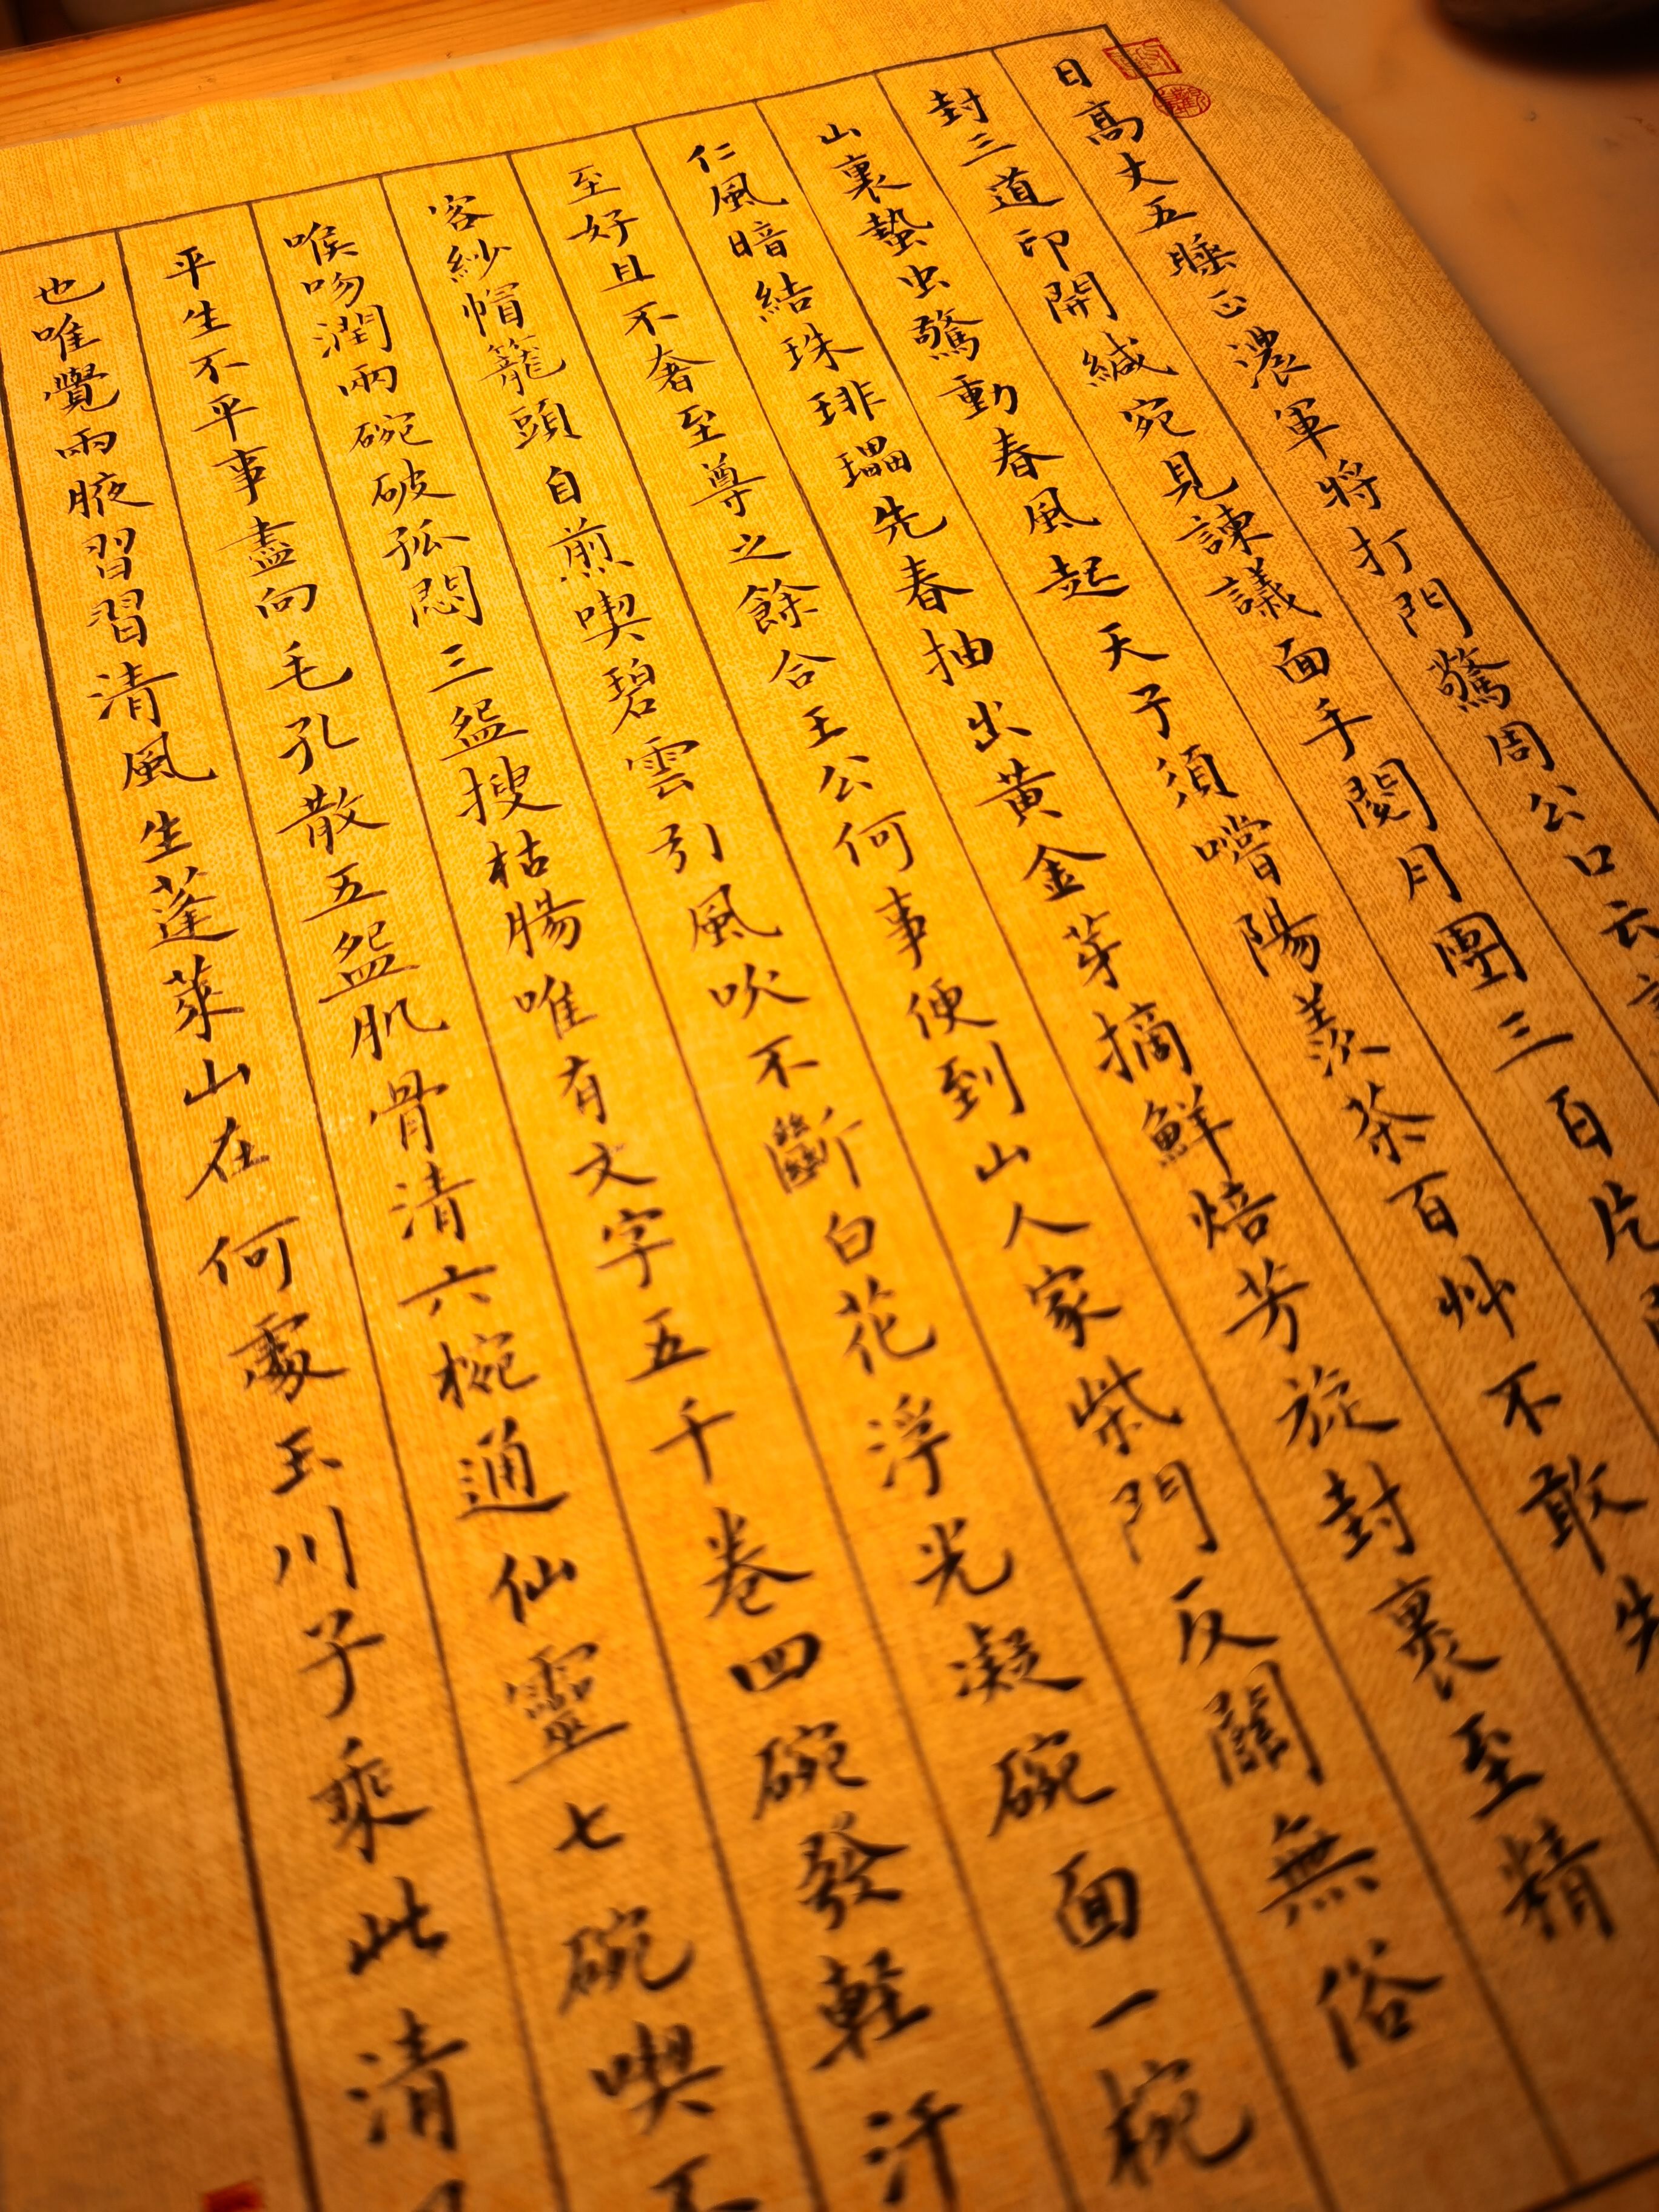 日高丈五睡正濃軍將打門驚周公口云
封三道印開緘宛見諫議面手閱月團三百片
山裏蟄虫驚動春風起天子須嚐陽羨茶百艸不敢先
仁風暗結珠琲瓃先春抽出黃金芽摘鮮焙芳旋封裹至精
至好且不奢至尊之餘合王公何事便到山人家柴門反關無俗
客紗帽籠頭自煎喫碧雲引風吹不斷白花浮光凝碗面一椀
喉吻潤兩碗破孤悶三盌搜枯腸唯有文字五千卷四碗發軽汗
平生不平事盡向毛孔散五盌肌骨清六椀通仙靈七碗喫不
也唯覺兩腋習習清風生蓬萊山在何處玉川子乘此清